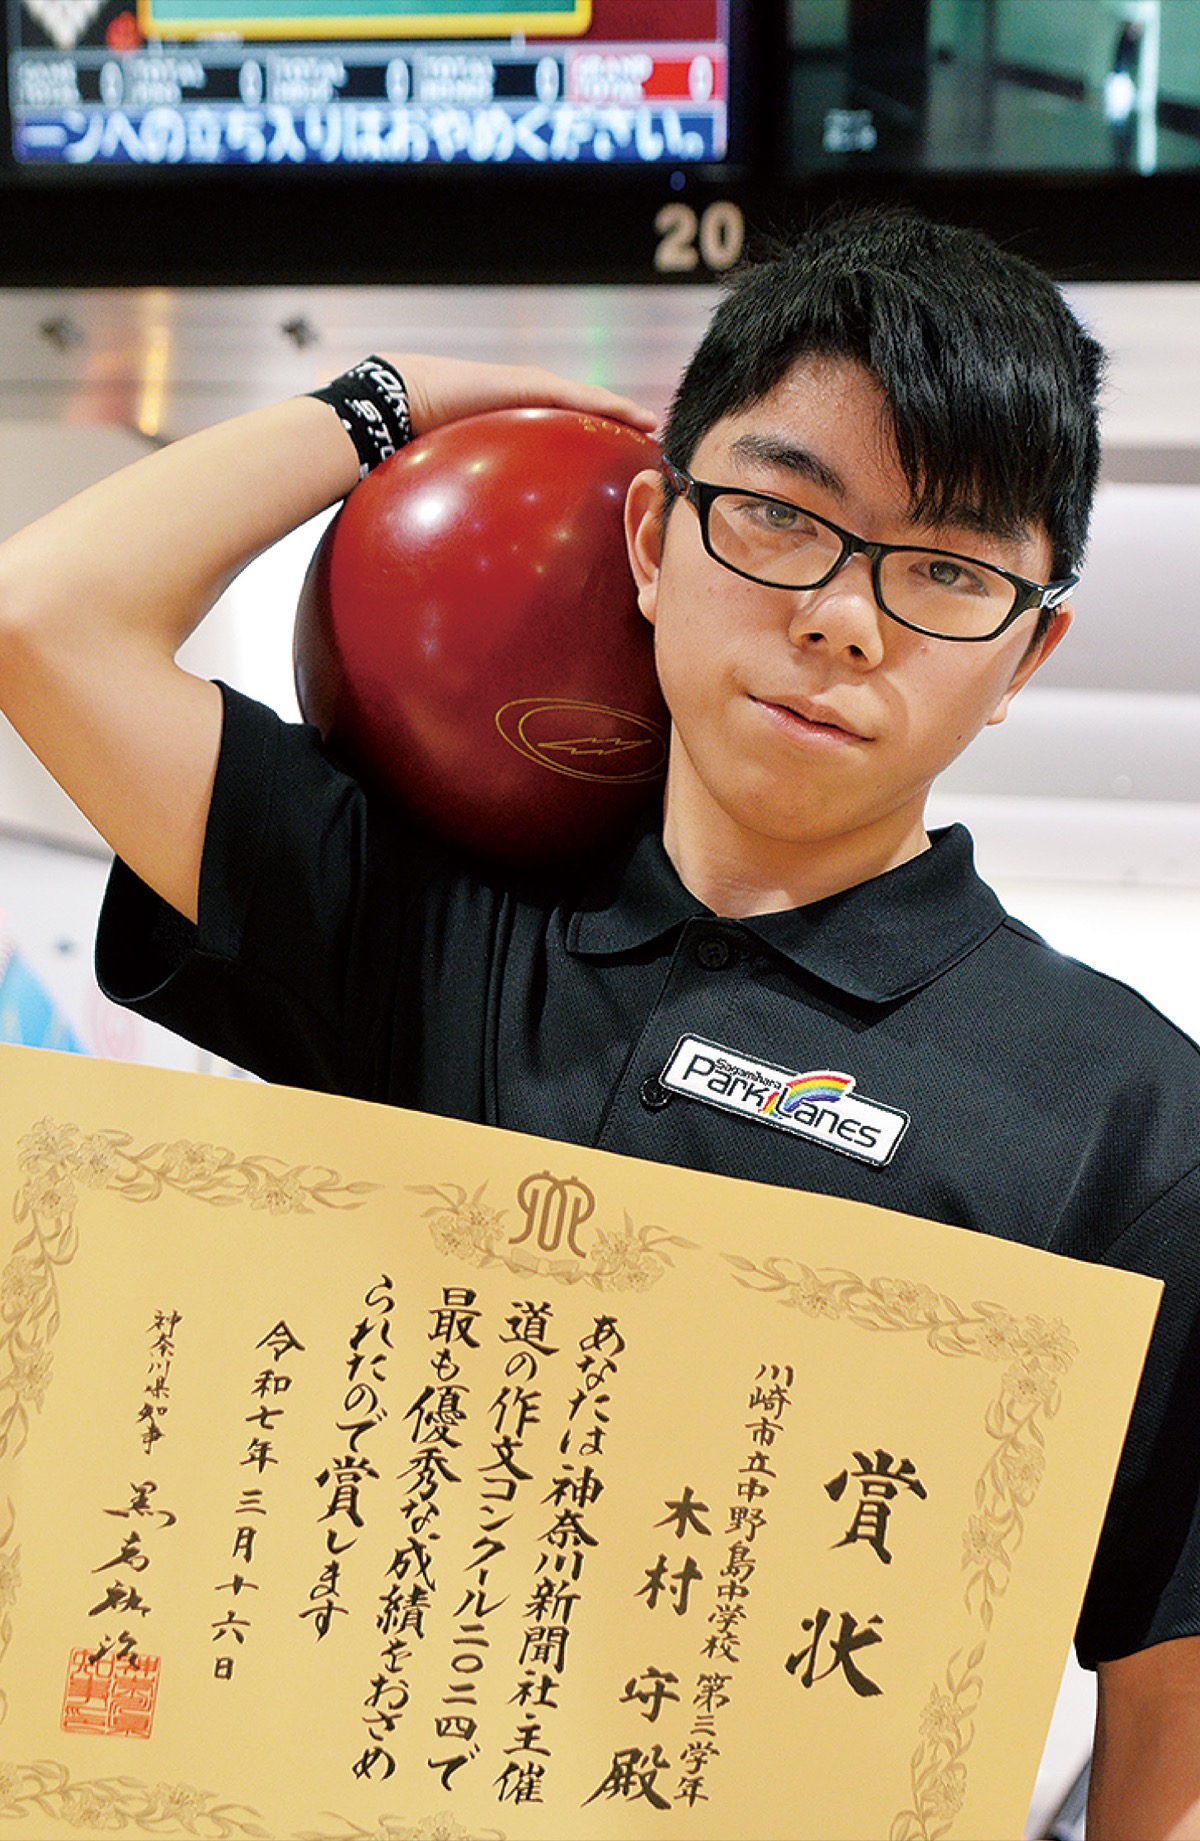 ーンへの立ち入りはおやめください。
20
STORM
Sagamihara
Park Lanes
賞状
川崎市立中野島中学校 第三学年
木村 守 殿
あなたは神奈川新聞社主催
道の作文コンクール二〇二四で
最も優秀な成績をおさめ
られたので賞します
令和七年三月十六日
神奈川県知事 黒岩祐治